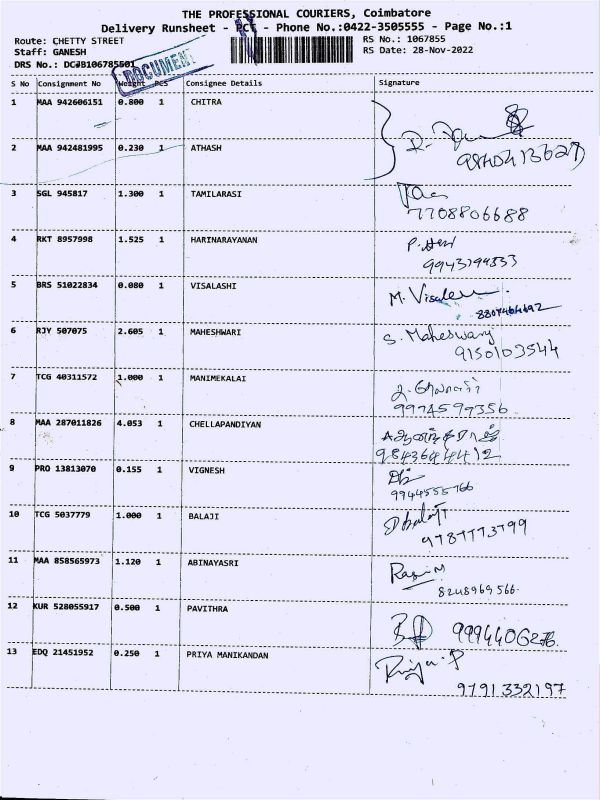 THE PROFESSIONAL COURIERS, Coimbatore
Delivery Runsheet - PCT - Phone No.:0422-3505555 - Page No.:1
Route: CHETTY STREET
RS No.: 1067855
Staff: GANESH
RS Date: 28-Nov-2022
DRS No.: DCJB106785501
DOCUMENT
S No Consignment No Weight Pcs Consignee Details Signature
1 MAA 942606151 0.800 1 CHITRA
2 MAA 942481995 0.230 1 ATHASH
3 SGL 945817 1.300 1 TAMILARASI
7708806688
4 RKT 8957998 1.525 1 HARINARAYANAN
5 BRS 51022834 0.080 1 VISALASHI
8807464692
6 RJY 507075 2.605 1 MAHESHWARI S. Maheswary
9150103544
7 TCG 40311572 1.000 1 MANIMEKALAI
9974597356
8 MAA 287011826 4.053 1 CHELLAPANDIYAN
9843644412
9 PRO 13813070 0.155 1 VIGNESH
9944555766
10 TCG 5037779 1.000 1 BALAJI
9787773799
11 MAA 858565973 1.120 1 ABINAYASRI
8248969566
12 KUR 528055917 0.500 1 PAVITHRA
13 EDQ 21451952 0.250 1 PRIYA MANIKANDAN Priya.P
9791332197